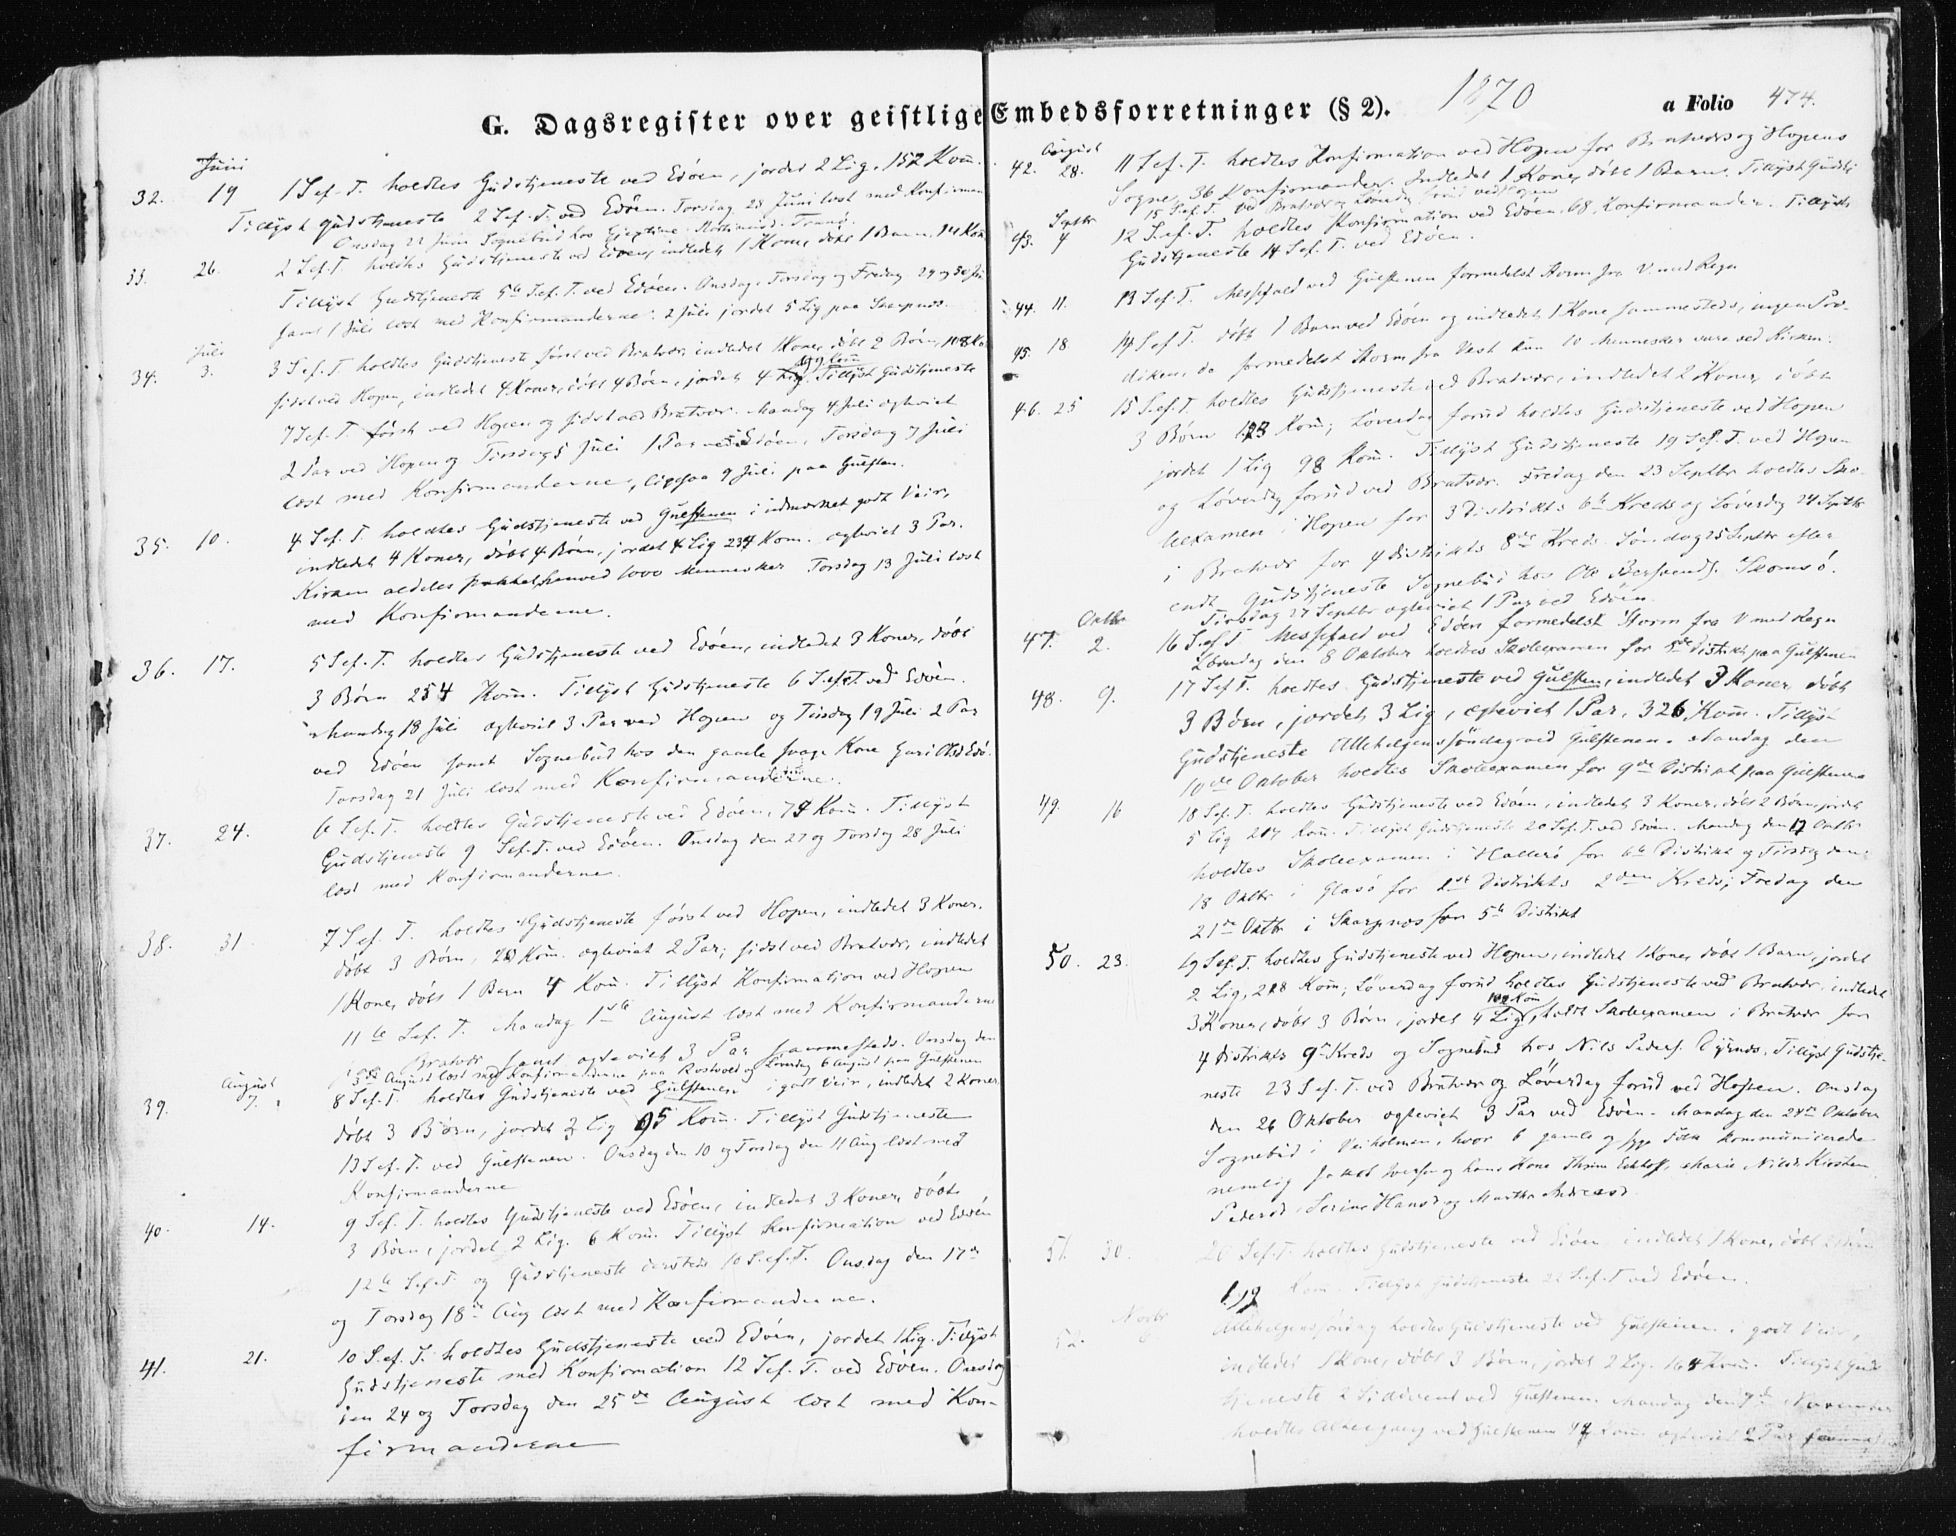 G. Dagsregister over geistlige Embedsforretninger (§ 2). 1870 a Folio 474.
Juni
32. 19 1 S. ef. T. holdtes Gudstjeneste ved Edöen, jordet 2 Lig. 152 Kom.
Tillyst Gudstjeneste 2 S. ef. T. ved Edöen. Torsdag 23 Juni læst med Konfirman
Onsdag 22 Juni Sognebud hos
33. 26. 2 S. ef. T. holdtes Gudstjeneste ved Edöen, indledet 1 Kone, döbt 1 Barn, Kom
Tillyst Gudstjeneste 5te S. ef. T. ved Edöen. Onsdag, Torsdag og Fredag 29 og 30 Juni
samt 1 Juli læst med Konfirmanderne. 2 Juli jordet 5 Lig paa Skarpnes.
Juli
34. 3. 3 S. ef. T. holdtes Gudstjeneste först ved Bratvær, indledet 1 Kone, döbt 2 Börn,
sidst ved Hopen, indledet 4 Koner, döbt 4 Börn, jordet 4 Lig. Tillyst Gudstjeneste
7 S. ef. T. först ved Hopen og sidst ved Bratvær. Mandag 4 Juli ægteviet
2 Par ved Hopen og Tirsdag 5 Juli 1 Par ved Edöen, Torsdag 7 Juli
læst med Konfirmanderne, ligesaa 9 Juli paa Gulsten.
35. 10. 4 S. ef. T. holdtes Gudstjeneste ved Gulstenen i udmærket godt Veir,
indledet 4 Koner, döbt 4 Börn, jordet 4 Lig 234 Kom. ægteviet 3 Par.
Kirken aldeles pakket, henved 1000 Mennesker Torsdag 13 Juli læst
med Konfirmanderne.
36. 17. 5 S. ef. T. holdtes Gudstjeneste ved Edöen, indledet 3 Koner, döbt
3 Börn 254 Kom. Tillyst Gudstjeneste 6 S. ef. T. ved Edöen.
Mandag 18 Juli ægteviet 3 Par ved Hopen og Tirsdag 19 Juli 2 Par
ved Edöen samt Sognebud hos den gamle svage Kone Guri Olsd Edö.
Torsdag 21 Juli læst med Konfirmanderne.
37. 24. 6 S. ef. T. holdtes Gudstjeneste ved Edöen, 74 Kom. Tillyst
Gudstjeneste 9 S. ef. T. ved Edöen. Onsdag den 27 og Torsdag 28 Juli
læst med Konfirmanderne.
38. 31. 7 S. ef. T. holdtes Gudstjeneste först ved Hopen, indledet 3 Koner,
döbt 3 Börn, Kom. ægteviet 2 Par; sidst ved Bratvær, indledet
1 Kone, döbt 1 Barn 4 Kom. Tillyst Konfirmation ved Hopen
11te S. ef. T. Mandag 1ste August læst med Konfirmanderne
i Bratvær samt ægteviet 3 Par sammesteds. Onsdag den
3de August læst med Konfirmanderne paa Rostvold og Lörrdag 6 August paa Gulstenen
August
39. 7. 8 S. ef. T. holdtes Gudstjeneste ved Gulstenen i godt Veir, indledet 2 Koner,
döbt 3 Börn, jordet 2 Lig 95 Kom. Tillyst Gudstjeneste
13 S. ef. T. ved Gulstenen. Onsdag den 10 og Torsdag den 11 Aug læst med
Konfirmanderne
40. 14. 9 S. ef. T. holdtes Gudstjeneste ved Edöen, indledet 3 Koner, döbt
3 Börn, jordet 2 Lig. 6 Kom. Tillyst Konfirmation ved Edöen
12te S. ef. T. og Gudstjeneste 10 S. ef. T. Onsdag den 17de
og Torsdag 18de Aug læst med Konfirmanderne.
41. 21. 10 S. ef. T. holdtes Gudstjeneste ved Edöen, jordet 1 Lig. Tillyst
Gudstjeneste med Konfirmation 12 S. ef. T. ved Edöen. Onsdag
den 24 og Torsdag den 25de August læst med Kon-
firmanderne
August
42. 28. 11 S. ef. T. holdtes Konfirmation ved Hopen for Bratvær og Hopens
Sogne, 36 Konfirmander. Indledet 1 Kone, döbt 1 Barn. Tillyst Gudstj
15 S. ef. T. ved Bratvær og Löverdag forud ved Hopen
Septbr
43. 4 12 S. ef. T. holdtes Konfirmation ved Edöen, 68 Konfirmander. Tillyst
Gudstjeneste 14 S. ef. T. ved Edöen.
44. 11. 13 S. ef. T. Messefald ved Gulstenen formedelst Storm fra V. med Regn
45. 18 14 S. ef. T. döbt 1 Barn ved Edöen og indledet 1 Kone sammesteds, ingen Præ-
diken, da formedelst Storm fra Vest kun 10 Mennesker vare ved Kirken.
46. 25 15 S. ef. T. holdtes Gudstjeneste ved Bratvær, indledet 2 Koner, döbt
3 Börn 123 Kom; Löverdag forud holdtes Gudstjeneste ved Hopen
jordet 1 Lig 98 Kom. Tillyst Gudstjeneste 19 S. ef. T. ved Hopen
og Löverdag forud ved Bratvær. Fredag den 23 Septbr holdtes Sko-
leexamen i Hopen for 3 Distrikts 6te Kreds og Löverdag 24 Septbr
i Bratvær for 4 Distrikts 8de Kreds. Söndag 25 Septbr efter
endt Gudstjeneste Sognebud hos Ole Skomsö.
Tirsdag 27 Septbr ægteviet 1 Par ved Edöen.
Oktbr
47. 2. 16 S. ef. T. Messefald ved Edöen formedelst Storm fra V med Regn
Löverdag den 8 Oktober holdtes Skoleexamen for Distrikt paa Gulstenen
48. 9. 17 S. ef. T. holdtes Gudstjeneste ved Gulsten, indledet 3 Koner döbt
3 Börn, jordet 3 Lig, ægteviet 1 Par, 326 Kom. Tillyst
Gudstjeneste Allehelgenssöndag ved Gulstenen. Mandag den
10de Oktober holdtes Skoleexamen for 9de Distrikt paa Gulstenen
49. 16 18 S. ef. T. holdtes Gudstjeneste ved Edöen, indledet 3 Koner, döbt 2 Börn, jordet
5 Lig 217 Kom. Tillyst Gudstjeneste 20 S. ef. T. ved Edöen. Mandag den 17 Oktbr
holdtes Skoleexamen i Hallerö for 6te Distrikt og Tirsdag den
18 Oktbr i Glasö for 1st Distrikts 2den Kreds; Fredag den
21de Oktbr i Skarpnes for 5te Distrikt
50. 23. 19 S. ef. T. holdtes Gudstjeneste ved Hopen, indledet 1 Kone, döbt 1 Barn, jordet
2 Lig, 218 Kom; Löverdag forud holdtes Gudstjeneste ved Bratvær, indledet
3 Koner, döbt 3 Börn, jordet 4 Lig, holdt Skoleexamen i Bratvær for
4 Distrikts 9de Kreds og Sognebud hos Nils Peders. Dyrnæs. Tillyst Gudstje-
neste 23 S. ef. T. ved Bratvær og Löverdag forud ved Hopen. Onsdag
den 26 Oktober ægteviet 3 Par ved Edöen. Mandag den 24de Oktober
Sognebud i Veiholmen, hvor 6 gamle og syge Folk kommunicerede
nemlig Jakob Iversen og hans Kone Thrine, Marie Nilsd, Kirsten
Pedersd, Serine Hansd og Martha Andreasd.
51. 30. 20 S. ef. T. holdtes Gudstjeneste ved Edöen, indledet 1 Kone, döbt 2 Börn
Kom. Tillyst Gudstjeneste 22 S. ef. T. ved Edöen.
Novbr
52. Allehelgenssöndag holdtes Gudstjeneste ved Gulstenen i godt Veir,
indledet 1 Kone, döbt 3 Börn, jordet 2 Lig. 164 Kom. Tillyst Guds
tjeneste 2 S. i Advent ved Gulstenen. Mandag den 7de November
holdtes Altergang ved Gulstenen 47 Kom ægteviet 2 Par